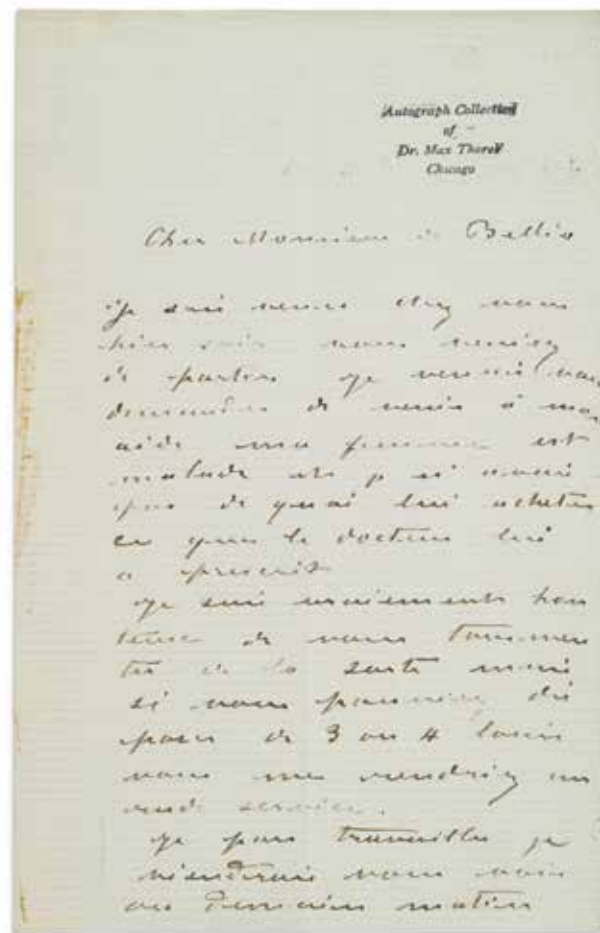 Autograph Collection
of
Dr. Max Thorek
Chicago
Cher Monsieur de Bellio
Je suis venu chez vous
hier soir vous veniez
de partir je venais vous
demander de venir à mon
aide ma femme est
malade et je n'avais
pas de quoi lui acheter
ce que le docteur lui
a prescrit
Je suis vraiment hon
teux de vous tourmen
ter de la sorte mais
si vous pouviez dis
poser de 3 ou 4 louis
vous me rendriez un
rude service.
Je pars travailler je
viendrais vous voir
ou demain matin